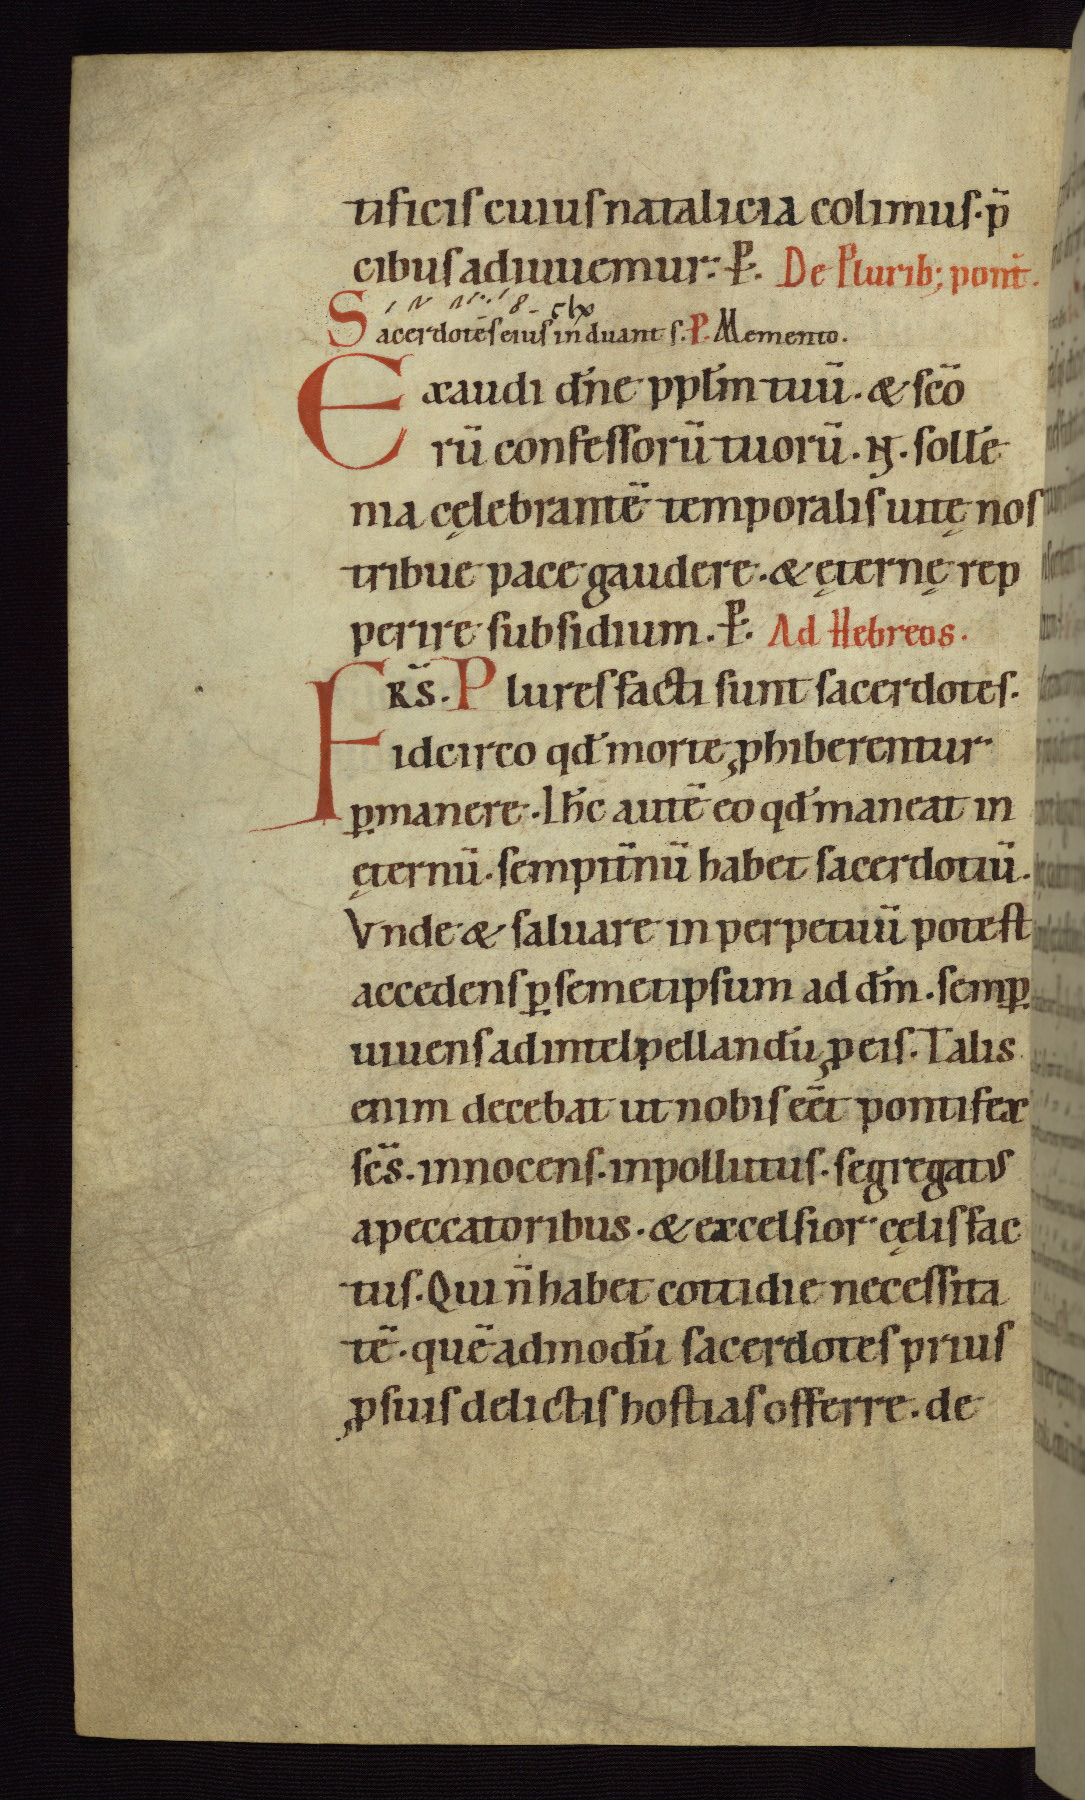 tificis cuius natalicia colimus · p̄
cibus adiuuemur : P̵ . De Plurib; pont̄ .
Sacerdotēs eius induant s . P . Memento .
Exaudi dn̄e ppl̄m tuū . & sc̄o
rū confessorū tuorū . N . sollē
nia cęlebrantē temporalis uitę nos
tribue pace gaudere . & ęternę rep
perire subsidium . P̵ . Ad Hebreos .
FRS̄ . Plures facti sunt sacerdotes .
idcirco qđ morte ꝓhiberentur
ꝑmanere . Ih̄c autē eo qđ maneat in
ęternū . sempit̄nū habet sacerdotiū .
Vnde & saluare in perpetuū potest
accedens ꝑ semetipsum ad dm̄ . semꝑ
uiuens ad intelpellandū ꝓ eis . Talis
enim decebat ut nobis eēt pontifex
sc̄s . innocens . inpollutus . segregatus
a peccatoribus . & excelsior cęlis fac
tus . Qui n̄ habet cottidie necessita
tē . quēadmodū sacerdotes prius
ꝓ suis delictis hostias offerre . de